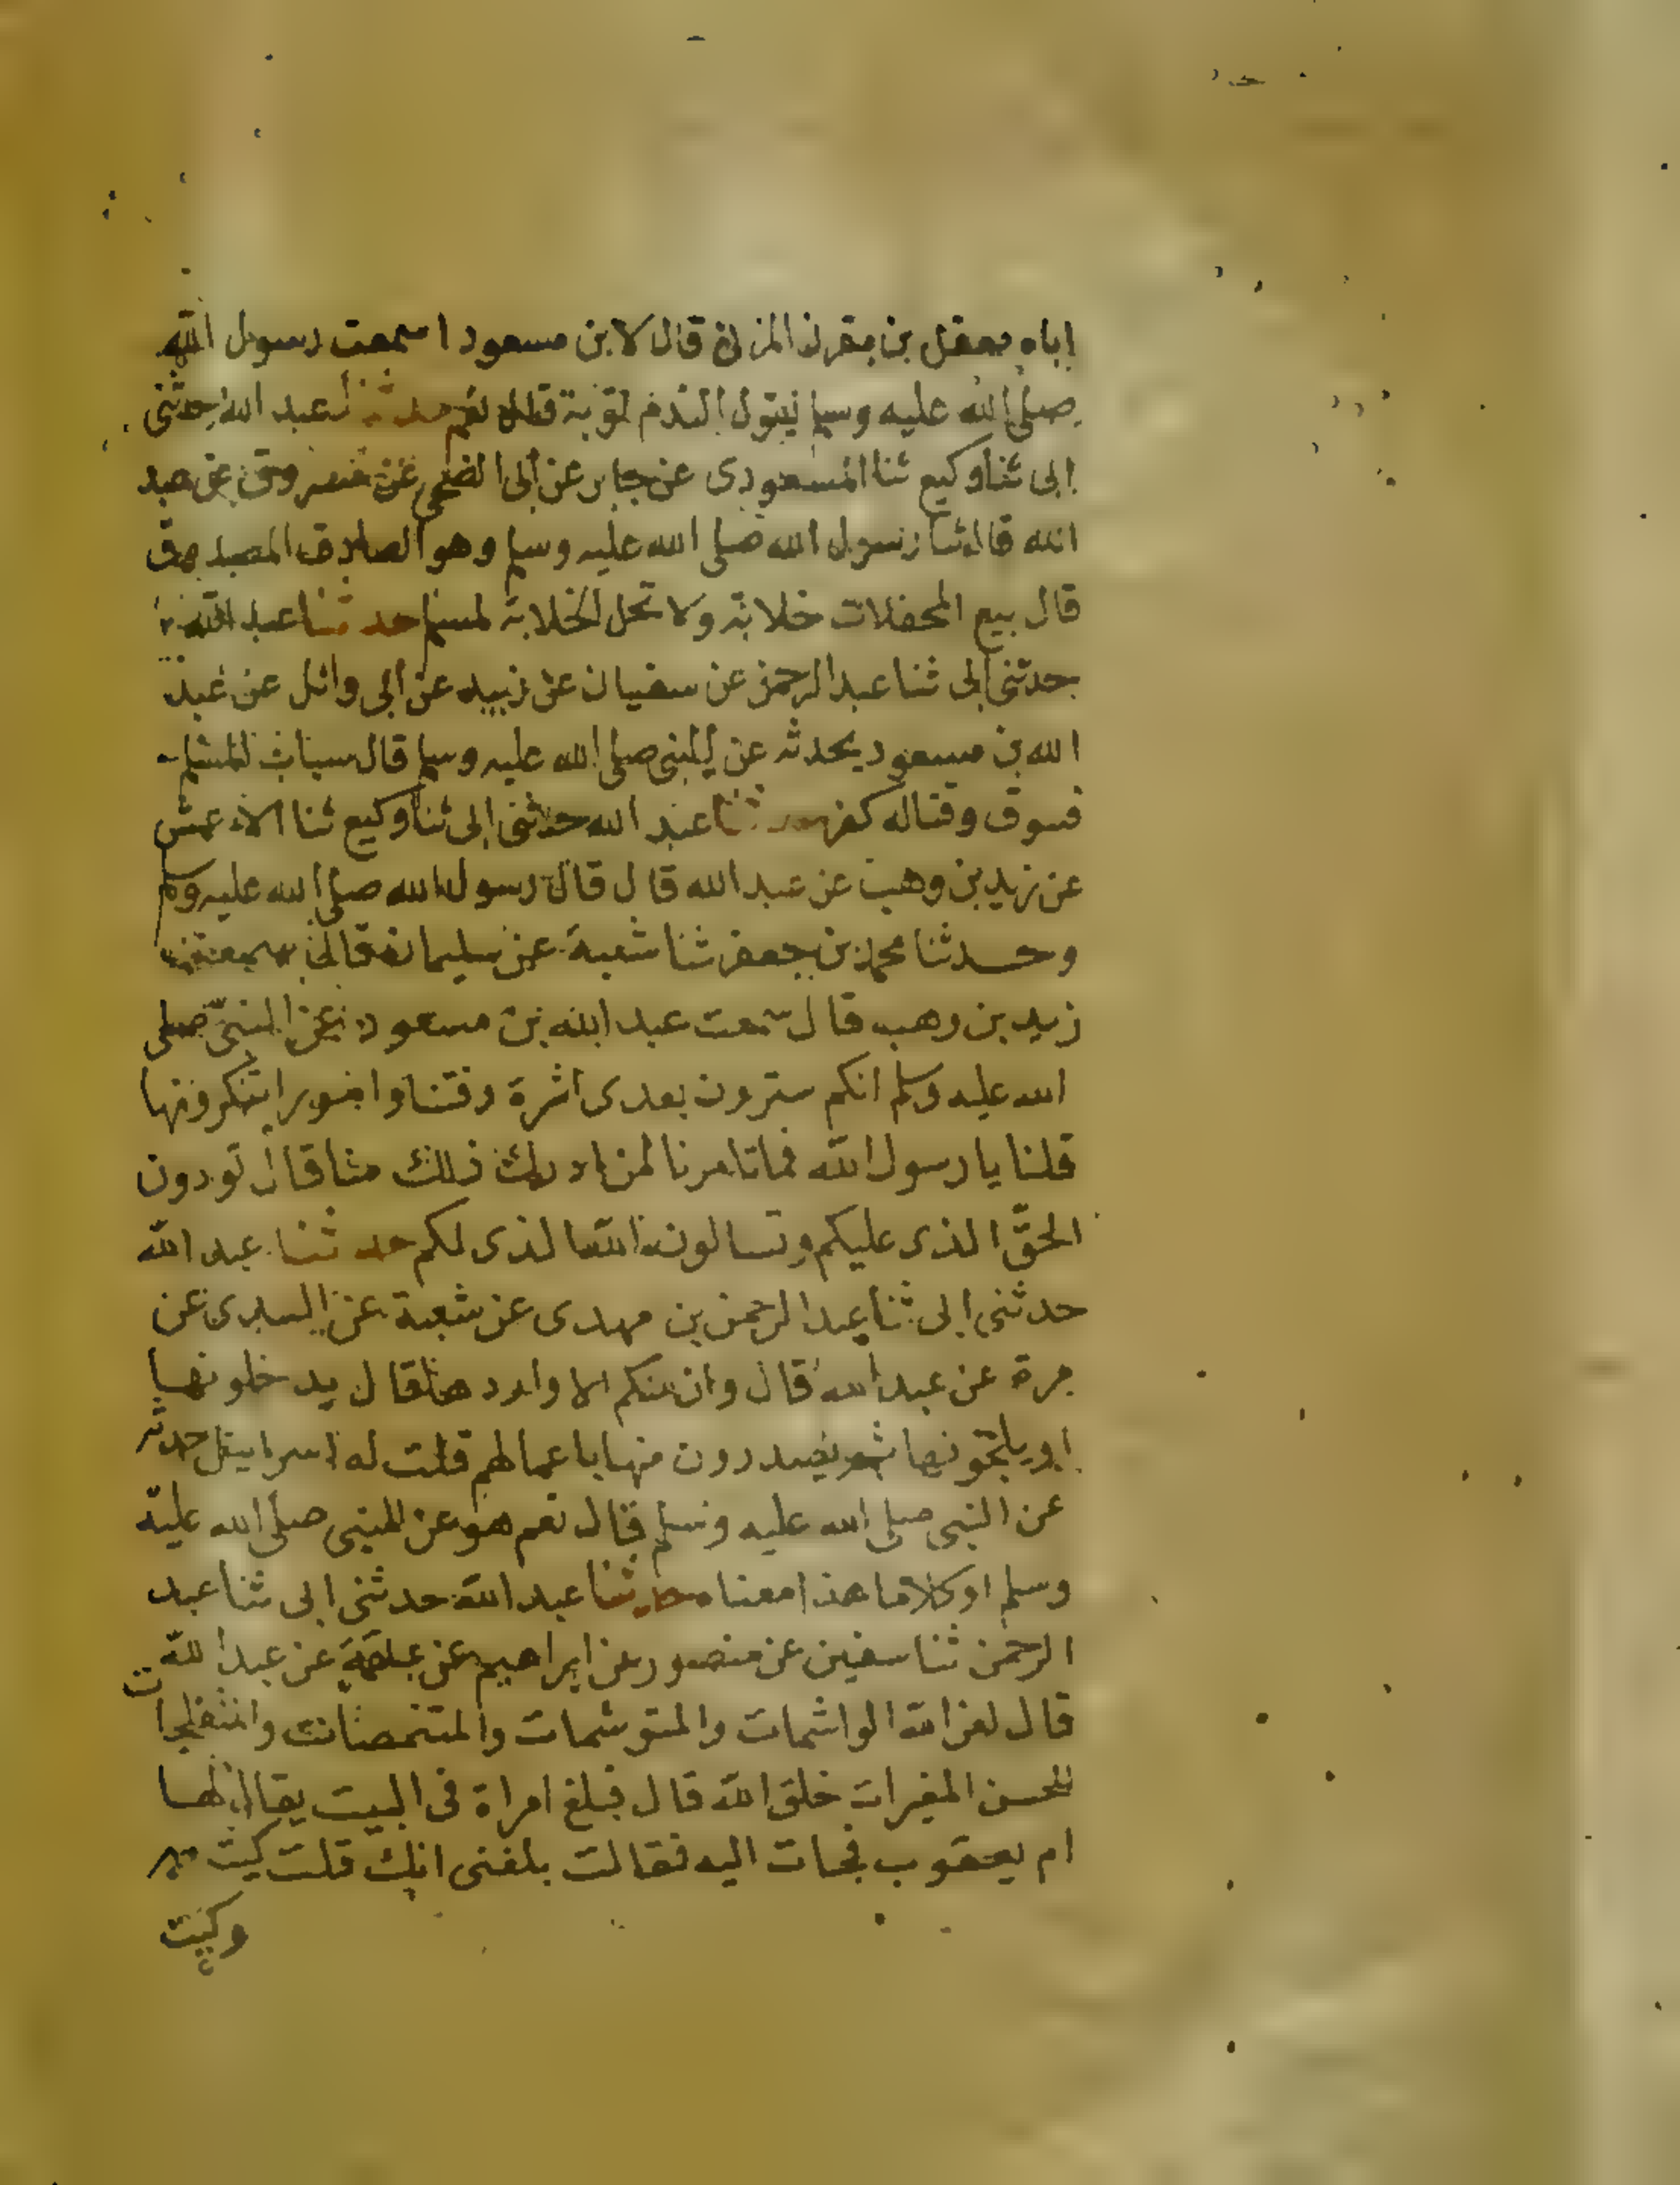 اباه معقل بن مقرن المزنى قال لابن مسعود اسمعت رسول الله
صلى الله عليه وسلم يقول الندم توبة قال نعم حدثنا عبد الله حدثنى
ابى ثنا وكيع ثنا المسعودى عن جابر عن أبى الضحى عن مسروق عن عبد
الله قال ثنا رسول الله صلى الله عليه وسلم وهو الصادق المصدوق
قال بيع المحفلات خلابة ولا تحل الخلابة لمسلم حدثنا عبد الله
حدثنى ابى ثنا عبد الرحمن عن سفيان عن زبيد عن ابى وائل عن عبد
الله بن مسعود يحدثه عن النبى صلى الله عليه وسلم قال سباب المسلم
فسوق وقتاله كفر حدثنا عبد الله حدثنى ابى ثنا وكيع ثنا الاعمش
عن زيد بن وهب عن عبد الله قال قال رسول الله صلى الله عليه وسلم
وحدثنا محمد بن جعفر ثنا شعبة عن سليمان قال سمعت
زيد بن وهب قال سمعت عبد الله بن مسعود عن النبىّ صلى
الله عليه وسلم انكم سترون بعدى اثرة وفتنا وامورا تنكرونها
قلنا يا رسول الله فما تامرنا لمن ادرك ذلك منا قال تودون
الحقّ الذى عليكم وتسالون الله الذى لكم حدثنا عبد الله
حدثنى ابى ثنا عبد الرحمن بن مهدى عن شعبة عن السدى عن
مرة عن عبد الله قال وان منكم الا واردها قال يدخلونها
او يلجونها ثم يصدرون منها باعمالهم قلت له اسراييل حدثه
عن النبى صلى الله عليه وسلم قال نعم هو عن النبى صلى الله عليه
وسلم او كلاما هذا معناه حدثنا عبد الله حدثنى ابى ثنا عبد
الرحمن ثنا سفين عن منصور عن ابراهيم عن علقمة عن عبد الله
قال لعن الله الواشمات والمتوشمات والمتنمصات والمتفلجات
للحسن المغيرات خلق الله قال فبلغ امراة فى البيت يقال لها
ام يعقوب فجات اليه فقالت بلغنى انك قلت كيت
وكيت